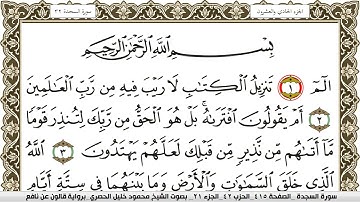 الجزء الحادي والعشرون
سورة السجدة ٣٢
بِسْمِ اللَّهِ الرَّحْمَٰنِ الرَّحِيمِ
أَلَٓمِّٓ ١ تَنزِيلُ الْكِتَٰبِ لَا رَيْبَ فِيهِ مِن رَّبِّ الْعَٰلَمِينَ
٢ أَمْ يَقُولُونَ افْتَرَىٰهُ بَلْ هُوَ الْحَقُّ مِن رَّبِّكَ لِتُنذِرَ قَوْمًا
مَّا أَتَىٰهُم مِّن نَّذِيرٍ مِّن قَبْلِكَ لَعَلَّهُمْ يَهْتَدُونَ ٣ اللَّهُ
الَّذِي خَلَقَ السَّمَٰوَٰتِ وَالْأَرْضَ وَمَا بَيْنَهُمَا فِي سِتَّةِ أَيَّامٍ
سورة السجدة _ الصفحة ٤١٥ _ الحزب ٤٢ _ الجزء ٢١ _ بصوت الشيخ محمود خليل الحصري برواية قالون عن نافع